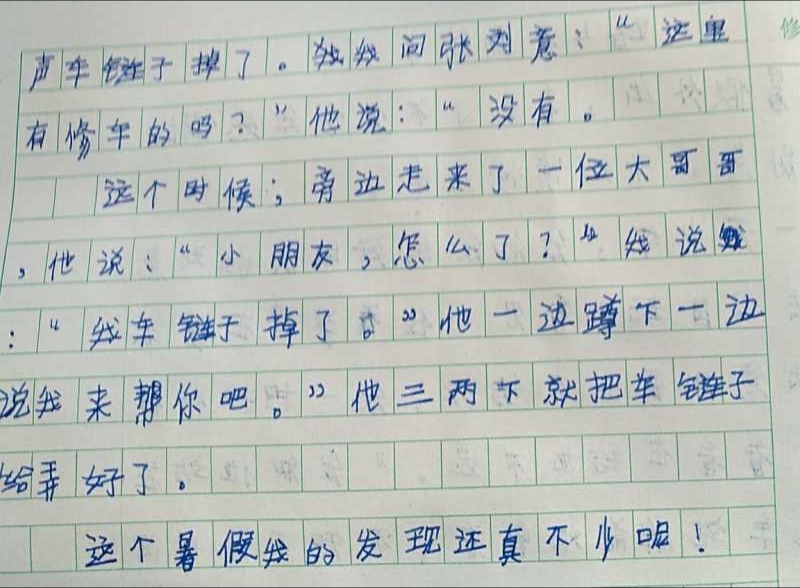 声车链子掉了。我我问张刘意：“这里
有修车的吗？”他说：“没有。
这个时候；旁边走来了一位大哥哥
，他说：“小朋友，怎么了？“我说我
：“我车链子掉了。”他一边蹲下一边
说我来帮你吧。”他三两下就把车链子
给弄好了。
这个暑假我的发现还真不少呢！
修